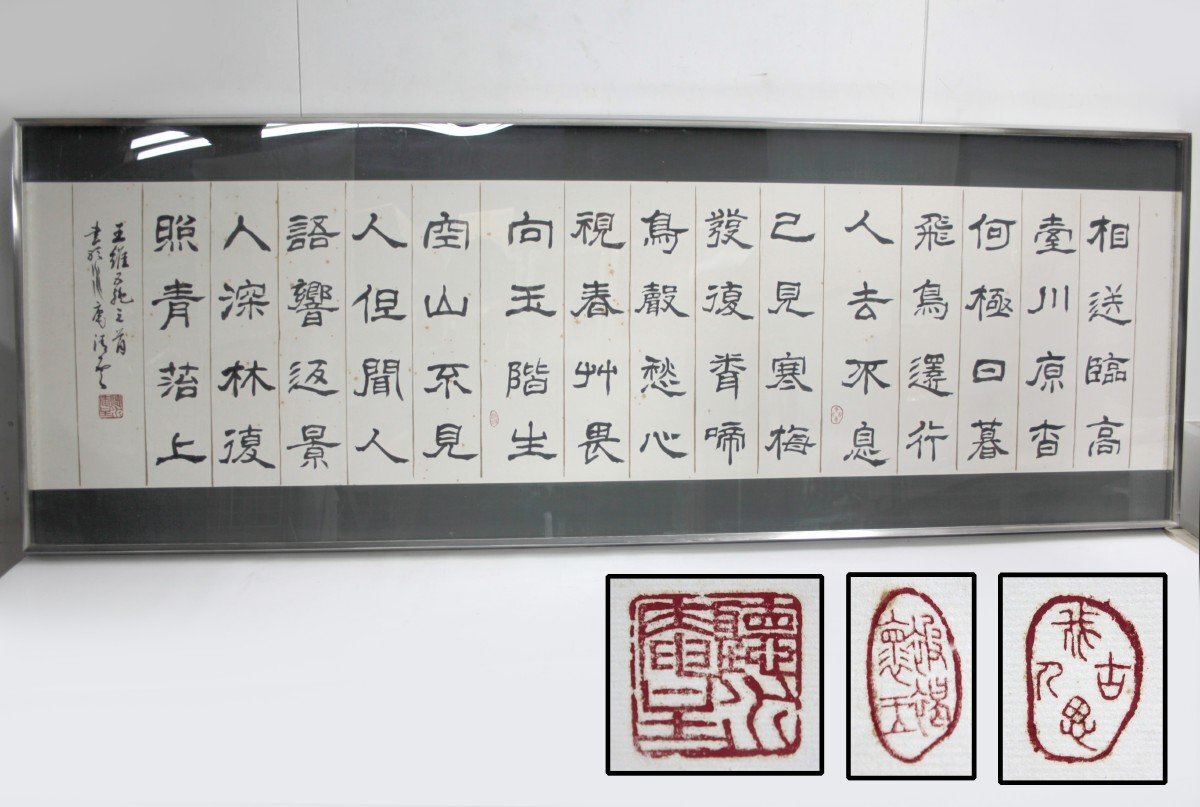 相送臨高
臺川原杳
何極日暮
飛鳥還行
人去不息
已見寒梅
發復䎽啼
鳥聲愁心
視春艸畏
向玉階生
空山不見
人但聞人
語響返景
入深林復
照青苔上
王維五絶三首
書於
被褐懷玉
我思古人